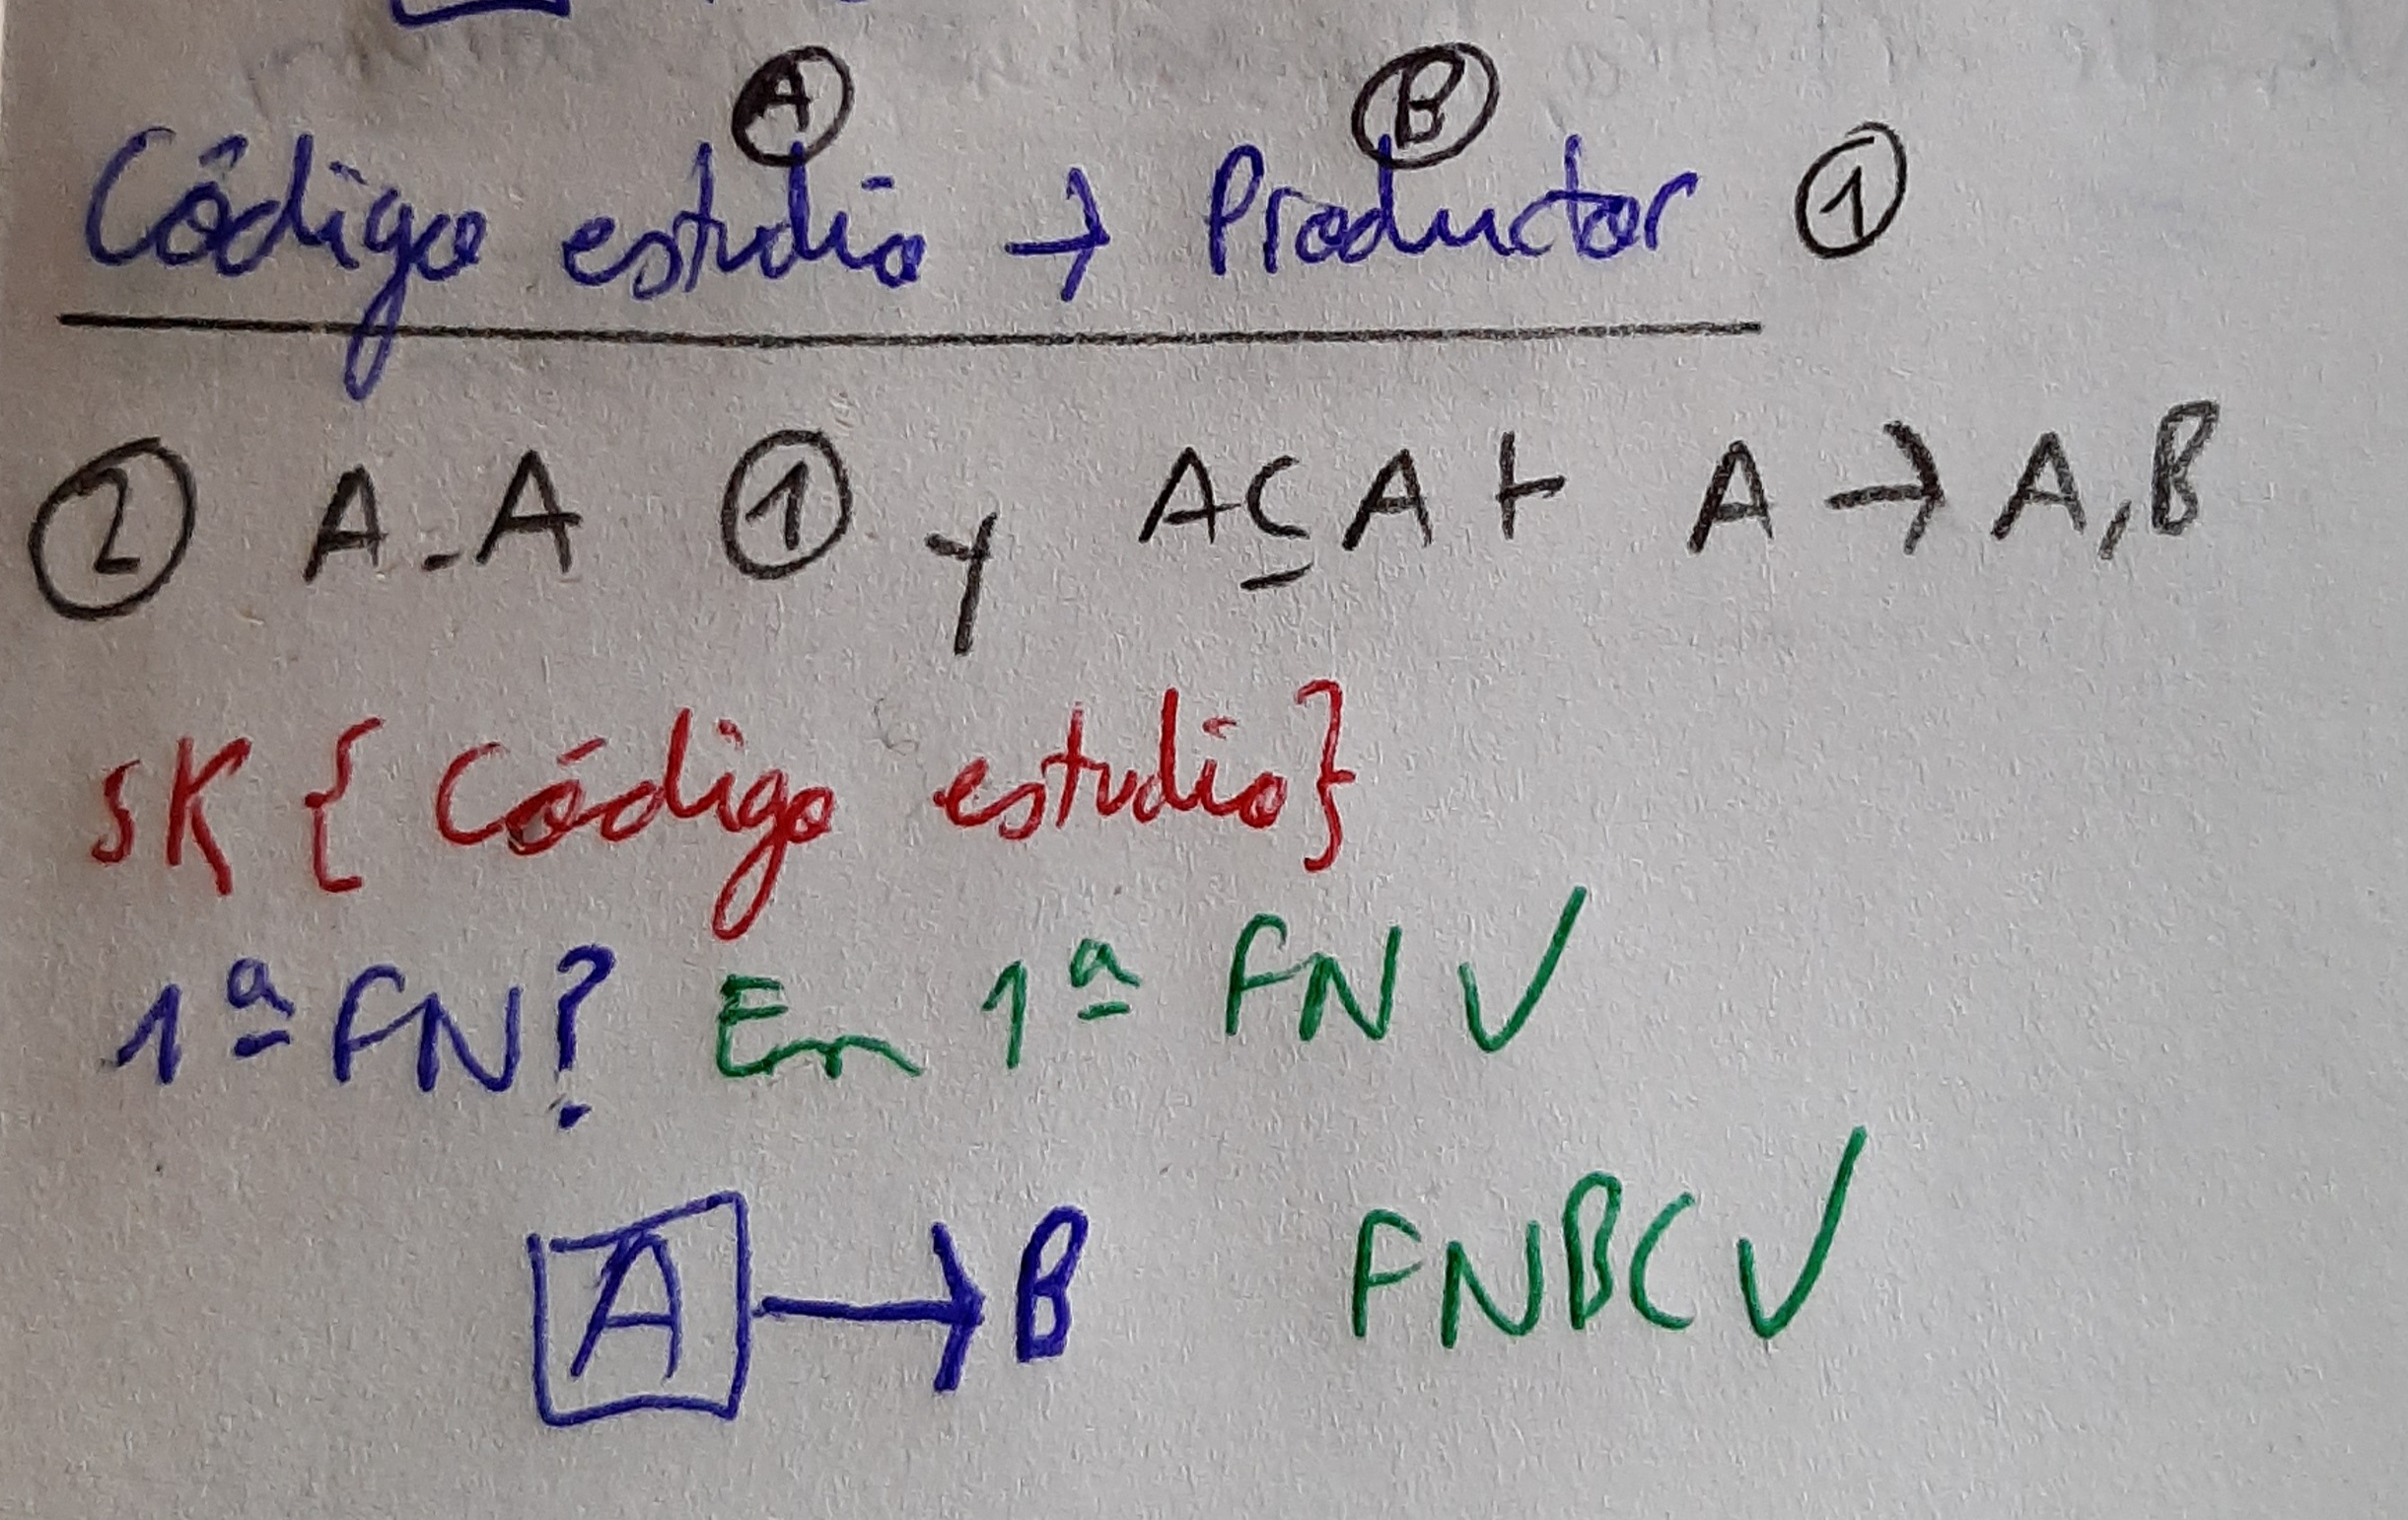 Ⓐ Ⓑ
Código estudio → Productor ①
② A.A ① y A⊆A ⊢ A → A,B
SK { Código estudio}
1ª FN? En 1ª FN ✓
A → B FNBC ✓